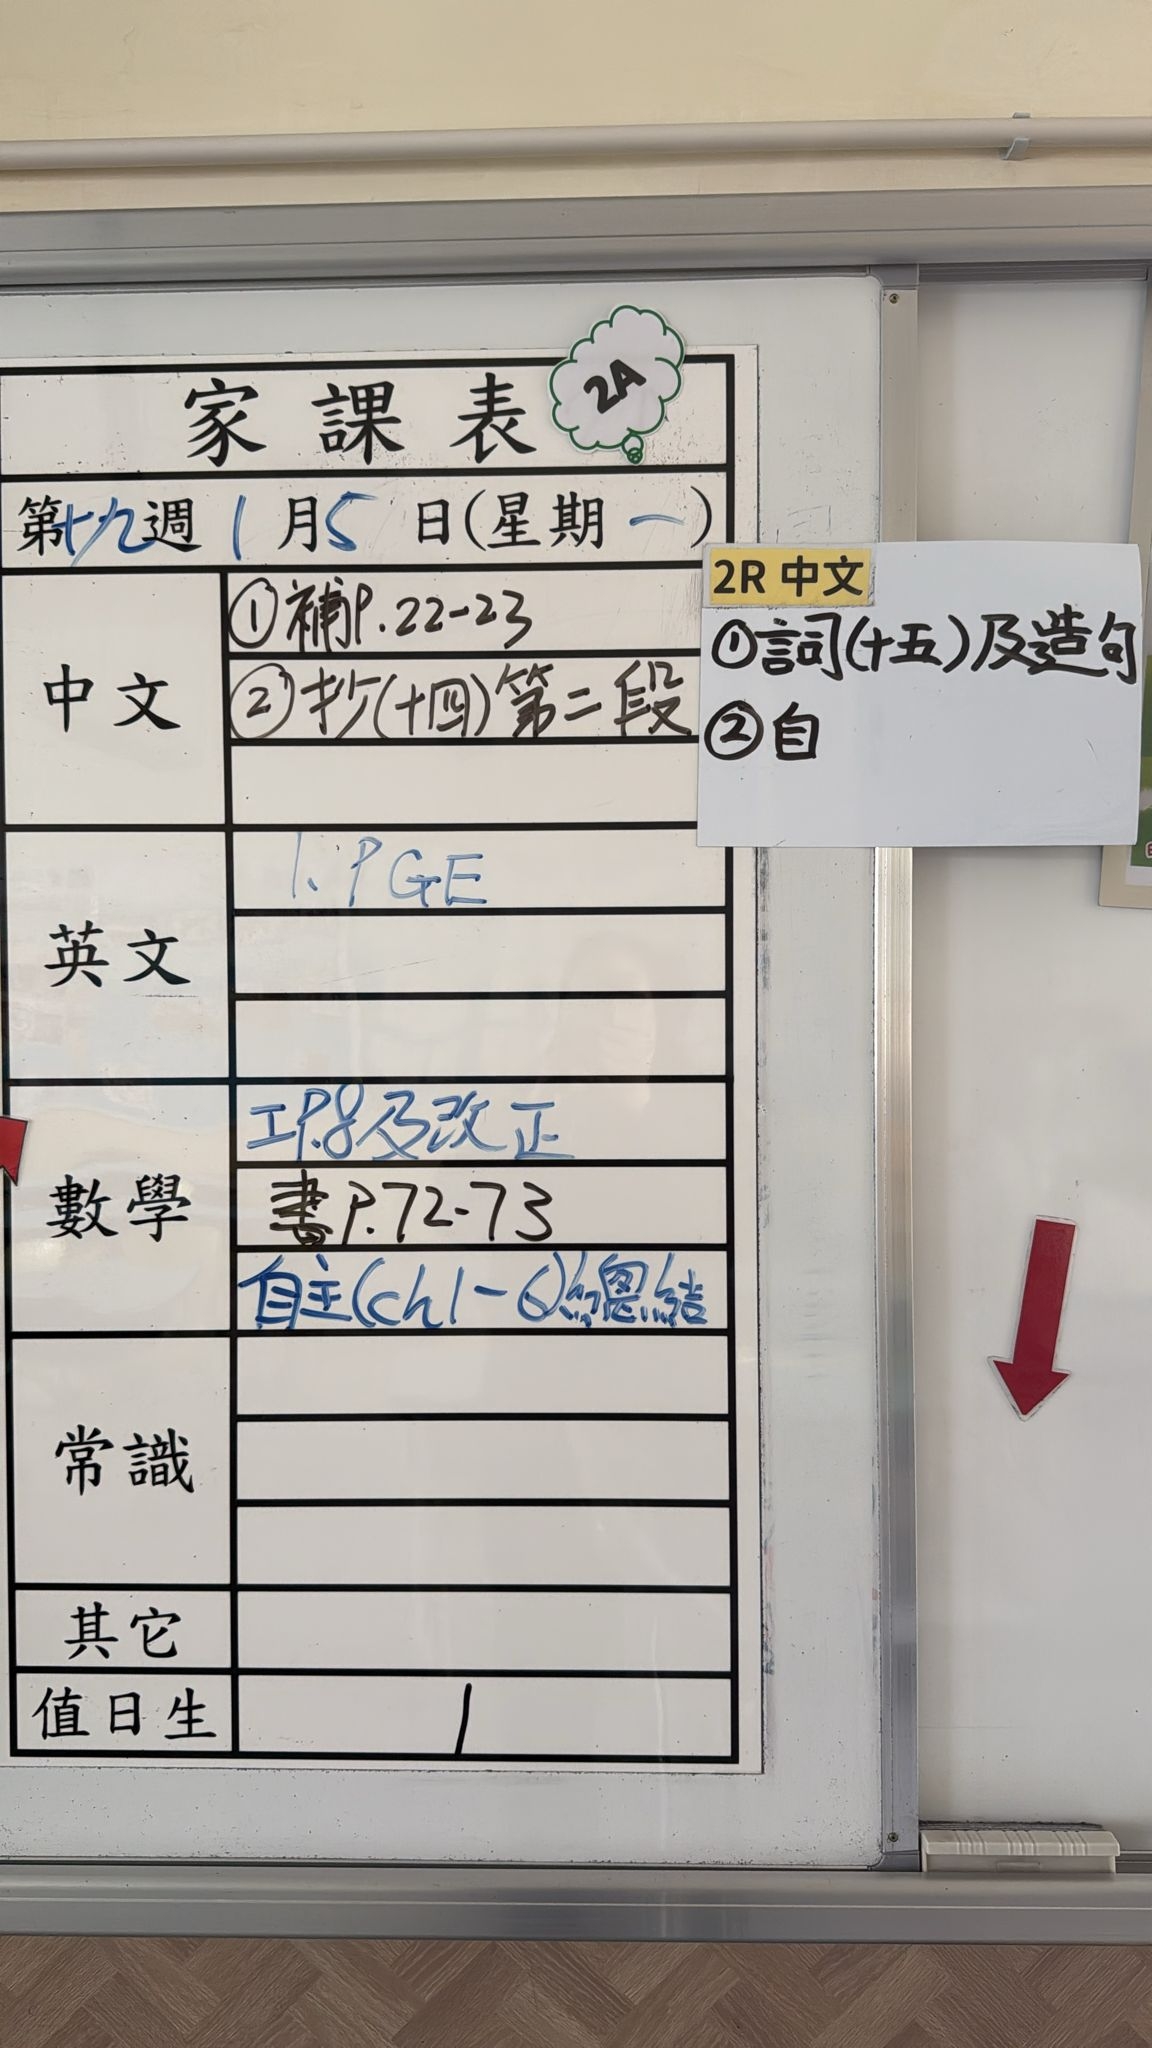 家課表
2A
第十九週 1月5日(星期一)
中文
①補P.22-23
②抄(十四)第二段
2R 中文
①詞(十五)及造句
②自
英文
1. PGE
數學
工P.8及改正
書P.72-73
自主(ch1-6)總結
常識
其它
值日生
1